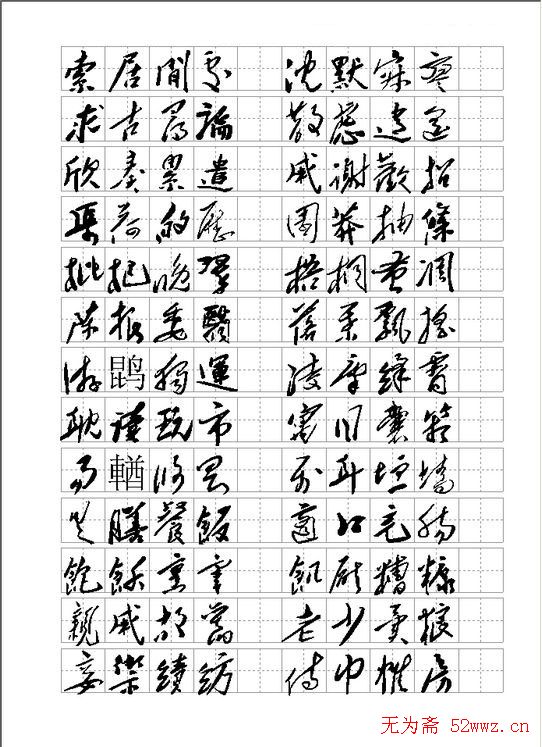 索居閒處 沈默寂寥
求古尋論 散慮逍遙
欣奏累遣 慼謝歡招
渠荷的歷 園莽抽條
枇杷晚翠 梧桐蚤凋
陳根委翳 落葉飄搖
游鹍獨運 凌摩絳霄
耽讀翫市 寓目囊箱
易輶攸畏 屬耳垣墻
具膳餐飯 適口充腸
飽飫烹宰 飢厭糟糠
親戚故舊 老少異糧
妾御績紡 侍巾帷房
无为斋 52wwz.cn